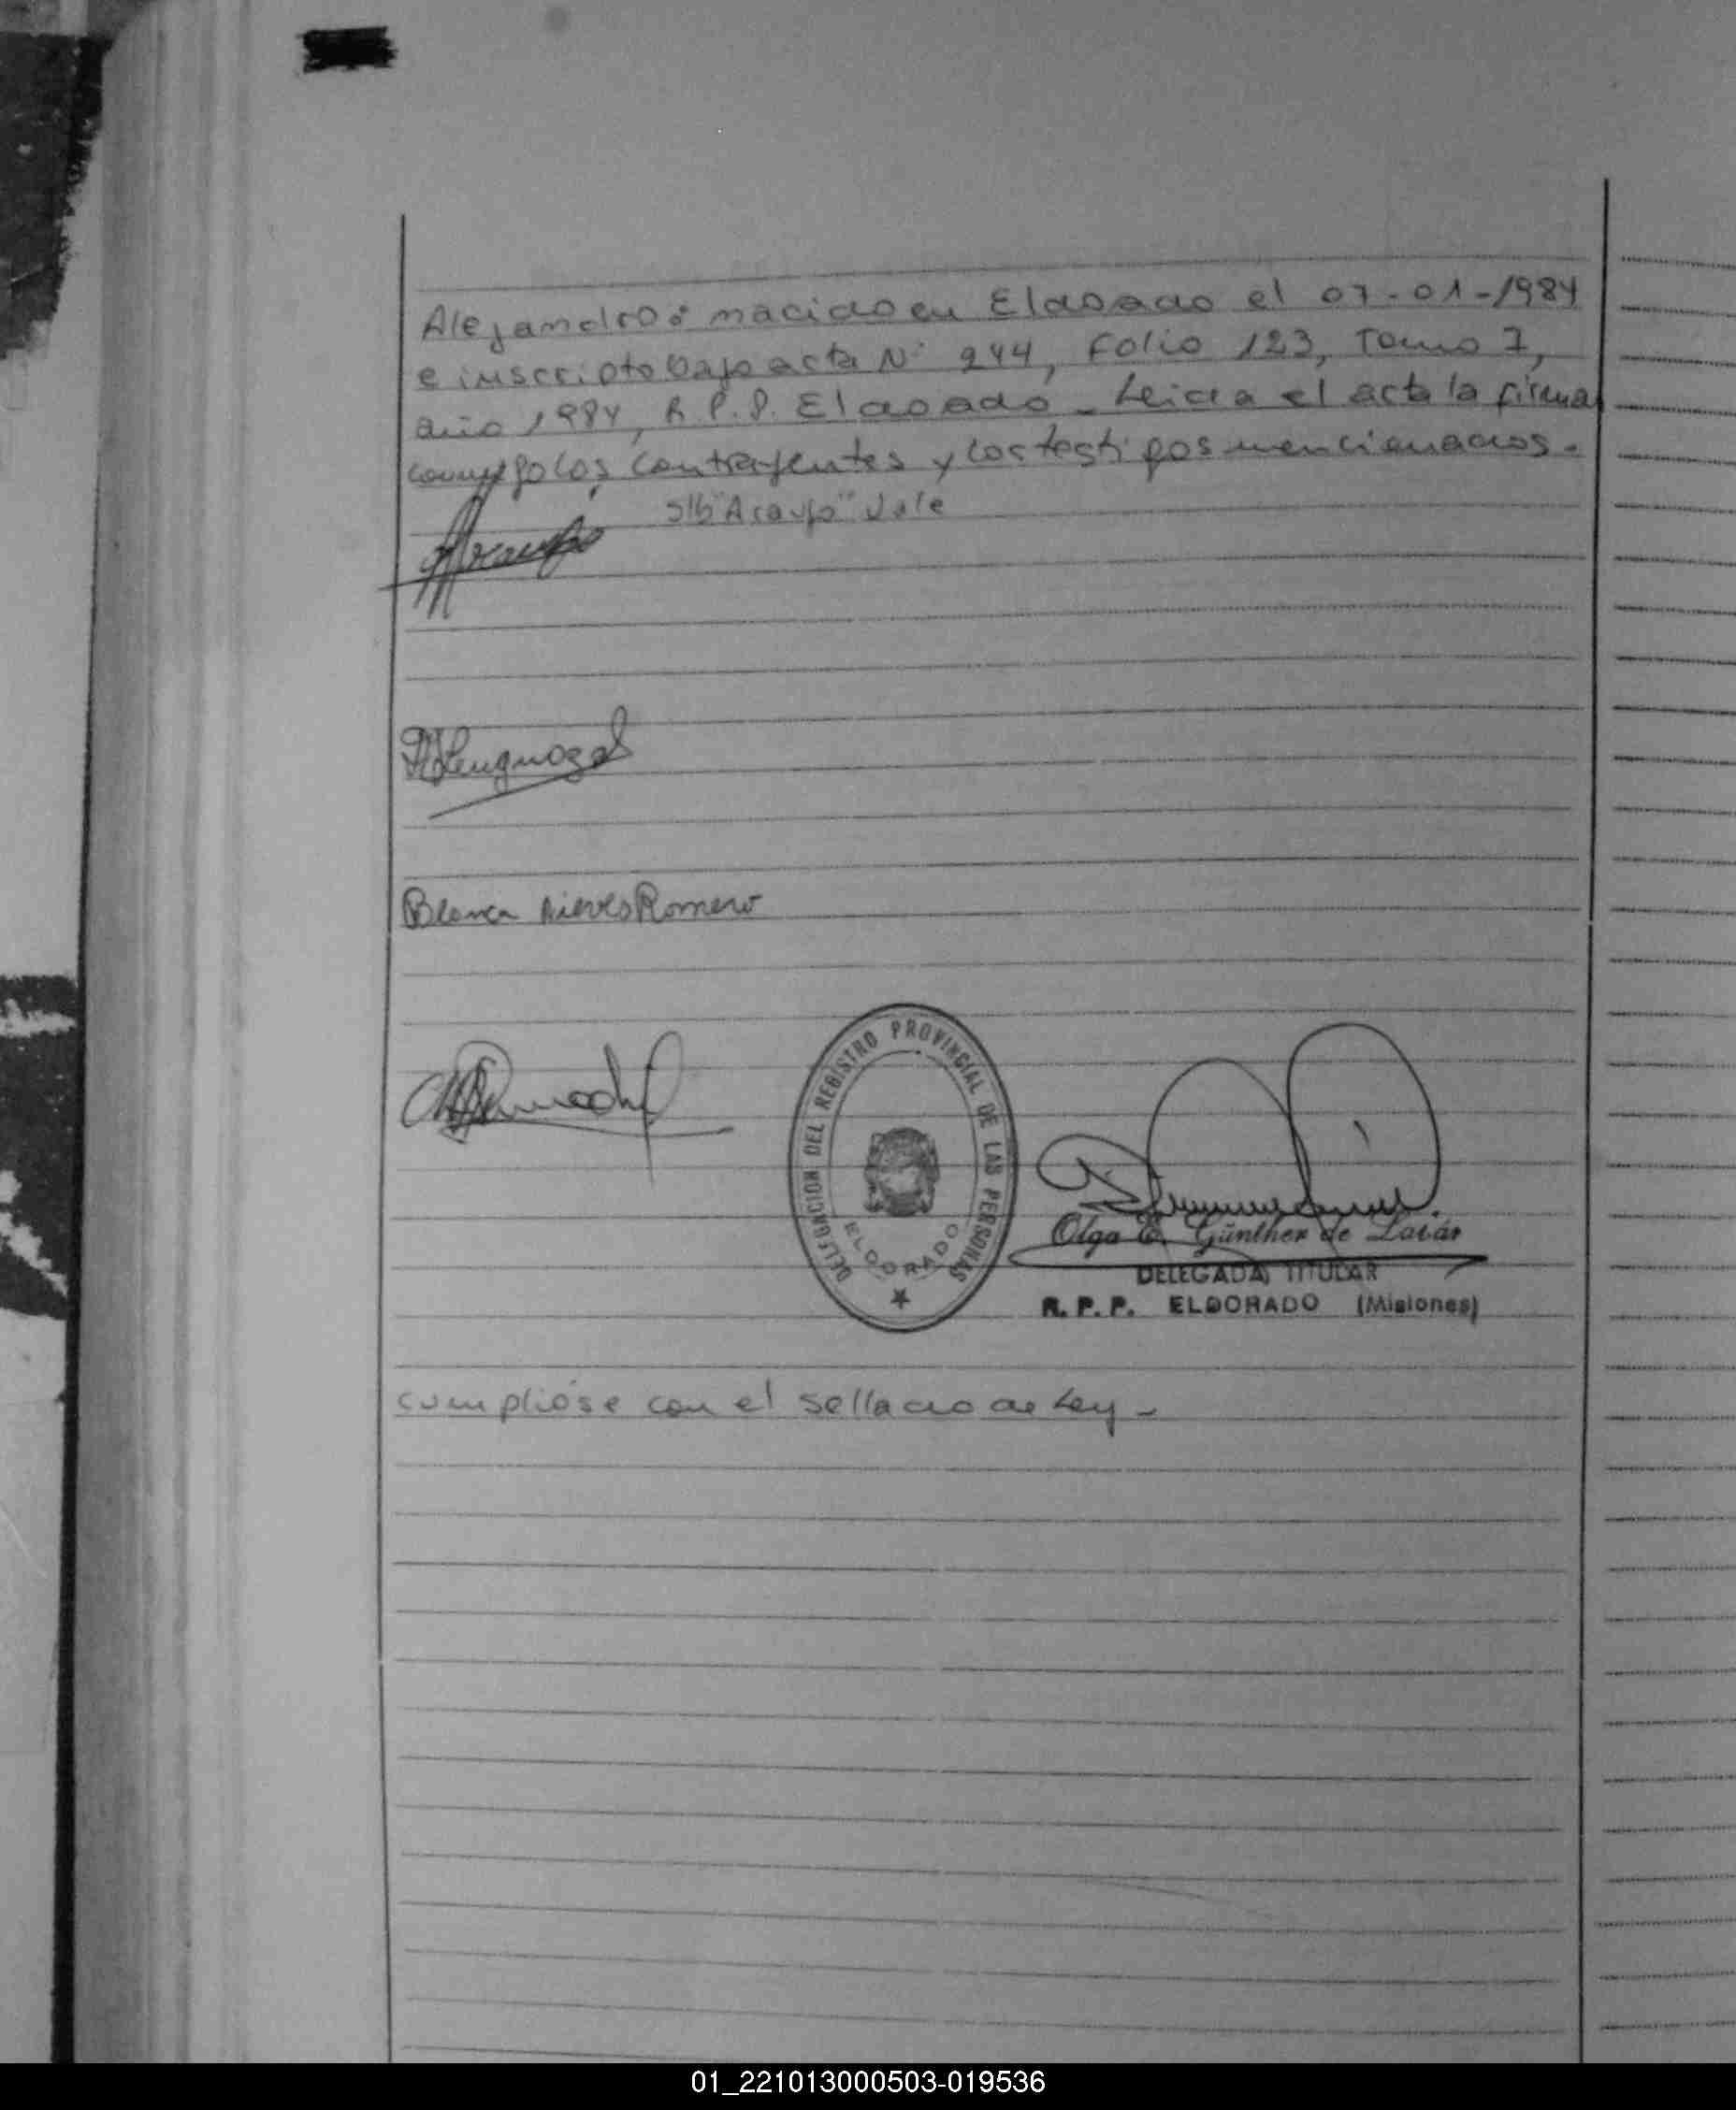 Alejandro: nacido en Eldorado el 07-01-1984
e inscripto bajo acta Nº 244, Folio 123, Tomo I,
año 1984, R.P.P. Eldorado - Leida el acta la firman
conmigo los contrayentes y los testigos mencionados.
s/b "Araujo" Vale
Araujo
Blanca Nieves Romero
DELEGACION DEL REGISTRO PROVINCIAL DE LAS PERSONAS
ELDORADO
Olga E. Günther de
DELEGADA TITULAR
R. P. P. ELDORADO (Misiones)
cumplióse con el sellado de Ley -
01_221013000503-019536